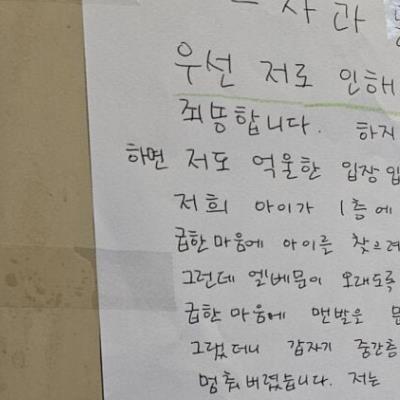 사과
우선 저로 인해
죄송합니다. 하지
하면 저도 억울한 입장입
저희 아이가 1층에
급한 마음에 아이를 찾으려
그런데 엘베문이 오래도록
급한 마음에 맨발을 문
그랬더니 갑자기 중간층
멈춰버렸습니다. 저는